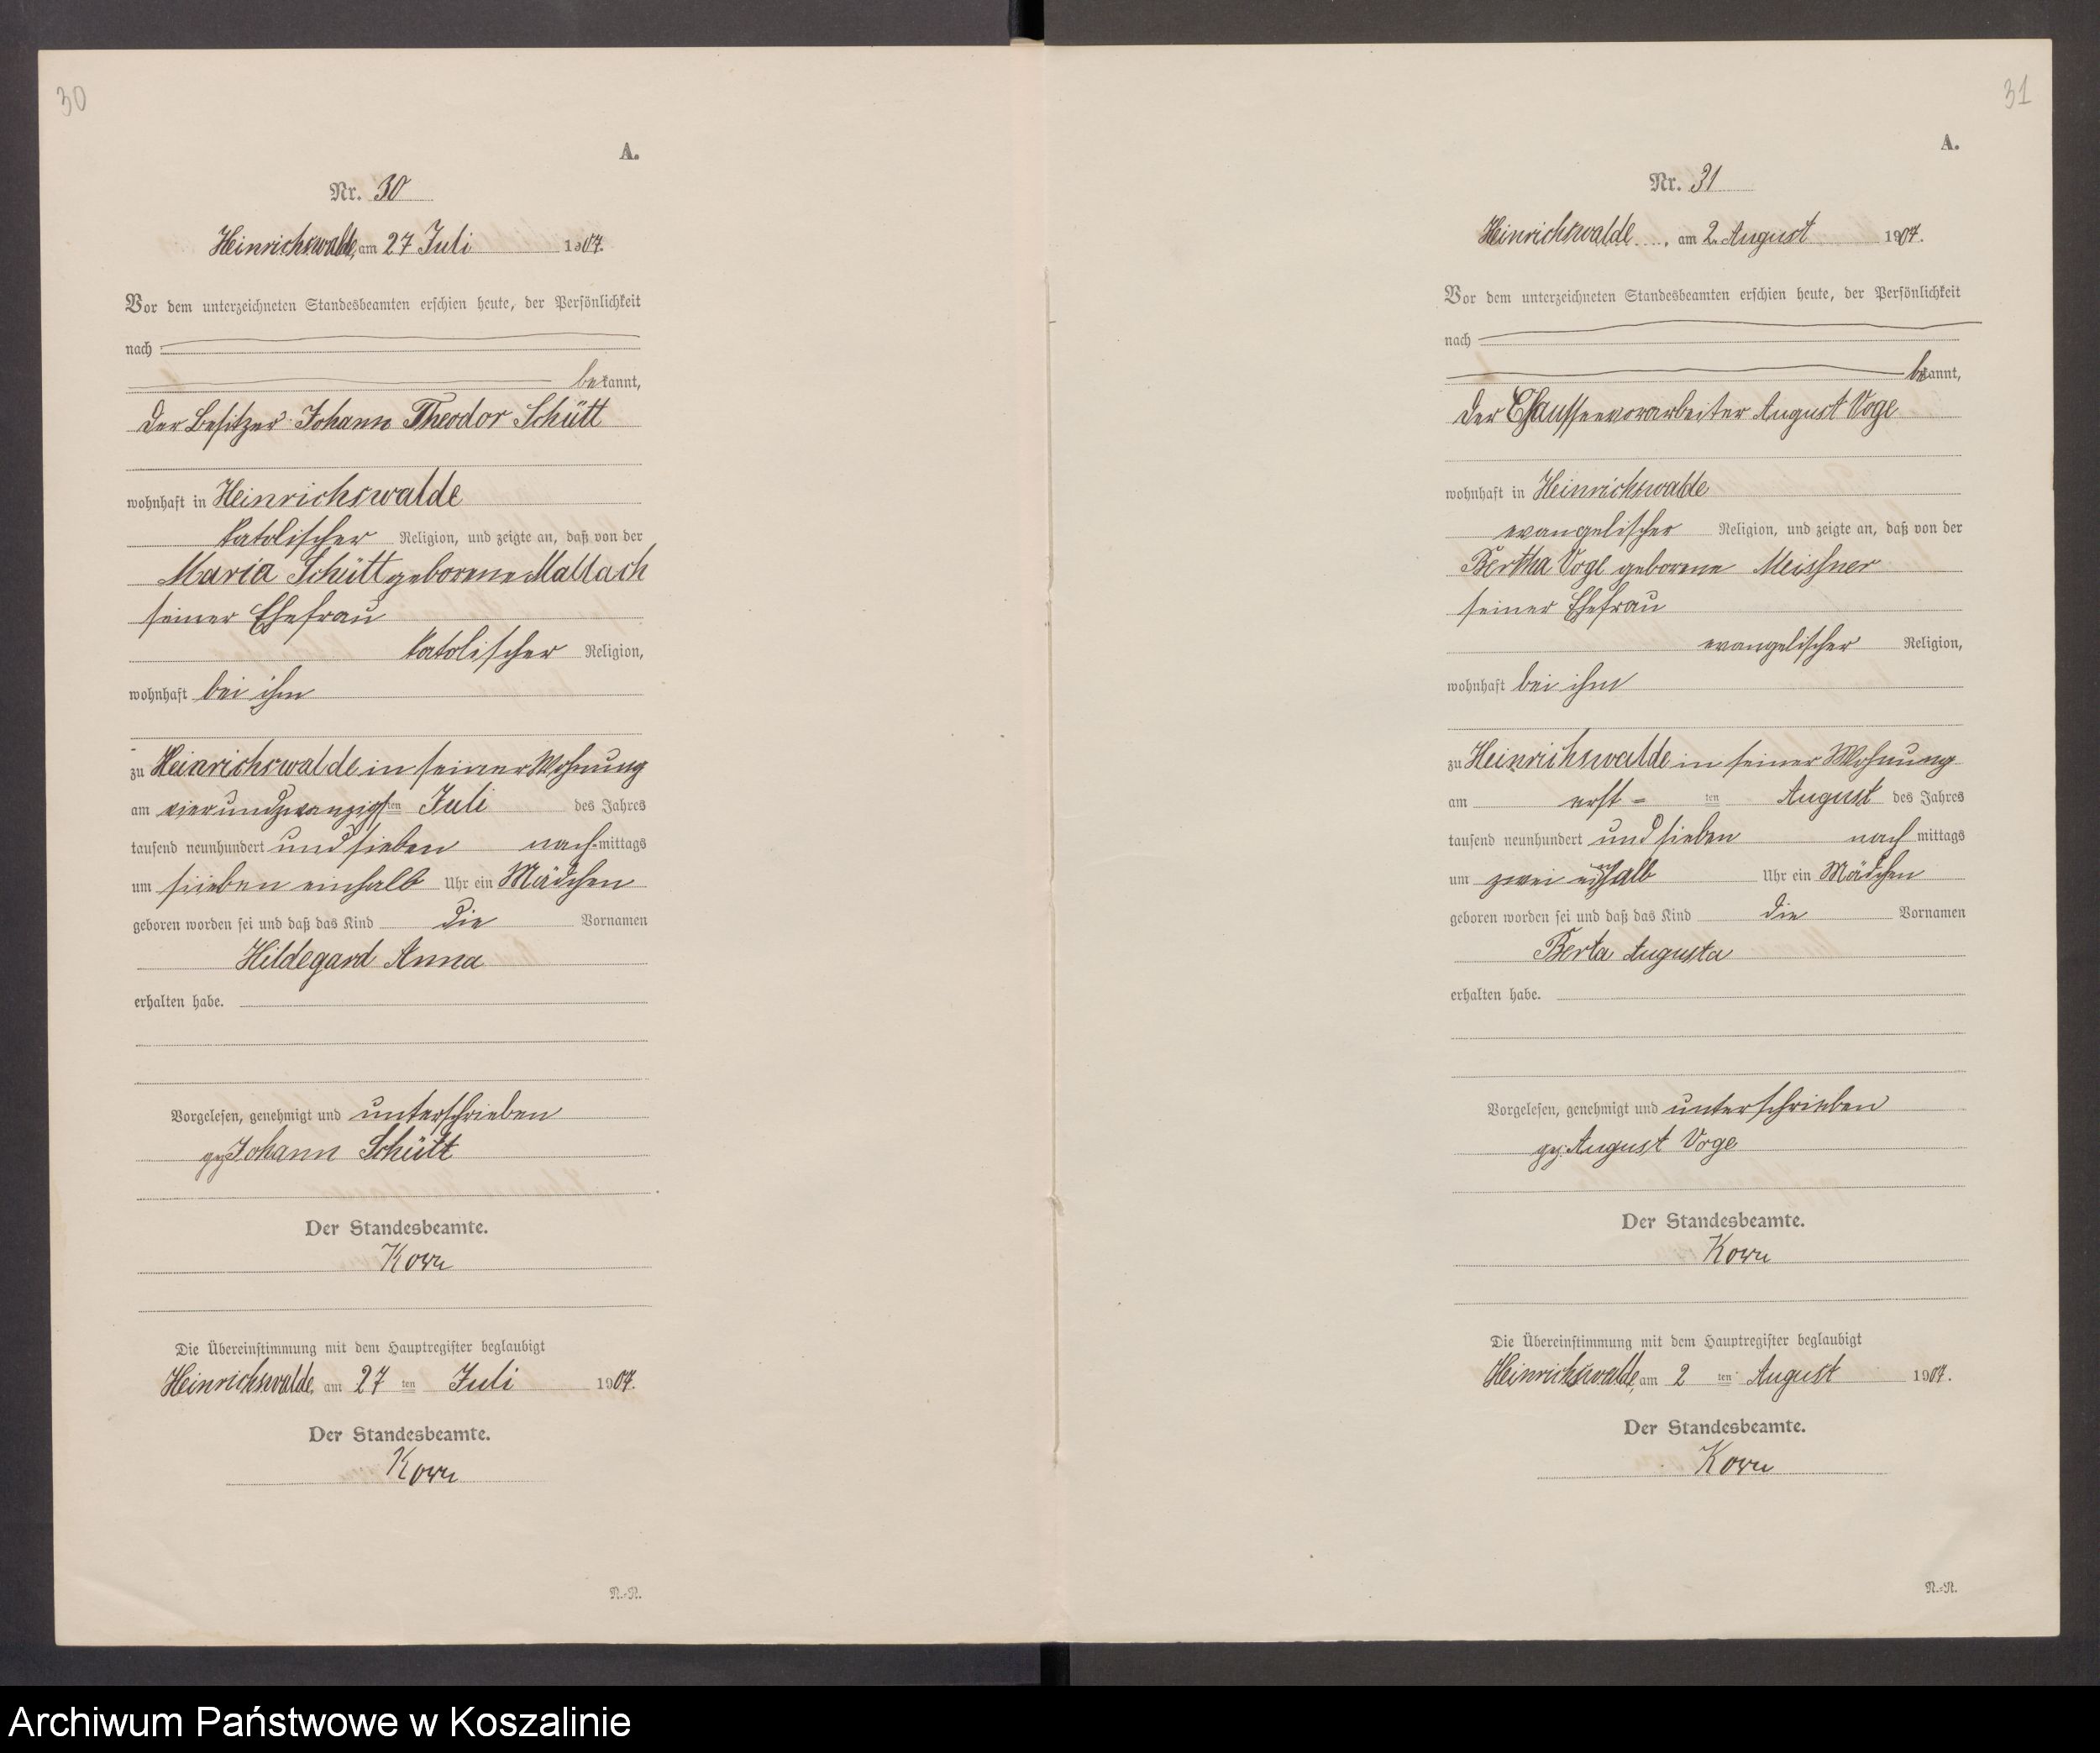 30
A.
Nr. 30
Heinrichswalde, am 27 Juli 1907.
Vor dem unterzeichneten Standesbeamten erschien heute, der Persönlichkeit
nach
bekannt,
der Besitzer Johann Theodor Schütt
wohnhaft in Heinrichswalde
katolischer Religion, und zeigte an, daß von der
Maria Schütt geborene Mallach
seiner Ehefrau
katolischer Religion,
wohnhaft bei ihm
zu Heinrichswalde in seiner Wohnung
am vierundzwanzigsten Juli des Jahres
tausend neunhundert und sieben nachmittags
um sieben einhalb Uhr ein Mädchen
geboren worden sei und daß das Kind die Vornamen
Hildegard Anna
erhalten habe.
Vorgelesen, genehmigt und unterschrieben
gez Johann Schütt
Der Standesbeamte.
Korn
Die Übereinstimmung mit dem Hauptregister beglaubigt
Heinrichswalde, am 27 ten Juli 1907.
Der Standesbeamte.
Korn
N.-N.
31
A.
Nr. 31
Heinrichswalde, am 2. August 1907.
Vor dem unterzeichneten Standesbeamten erschien heute, der Persönlichkeit
nach
bekannt,
der Chausseevorarbeiter August Voge
wohnhaft in Heinrichswalde
evangelischer Religion, und zeigte an, daß von der
Bertha Voge geborene Meissner
seiner Ehefrau
evangelischer Religion,
wohnhaft bei ihm
zu Heinrichswalde in seiner Wohnung
am erst-ten August des Jahres
tausend neunhundert und sieben nachmittags
um zwei einhalb Uhr ein Mädchen
geboren worden sei und daß das Kind die Vornamen
Berta Augusta
erhalten habe.
Vorgelesen, genehmigt und unterschrieben
gez. August Voge
Der Standesbeamte.
Korn
Die Übereinstimmung mit dem Hauptregister beglaubigt
Heinrichswalde, am 2 ten August 1907.
Der Standesbeamte.
Korn
N.-N.
Archiwum Państwowe w Koszalinie